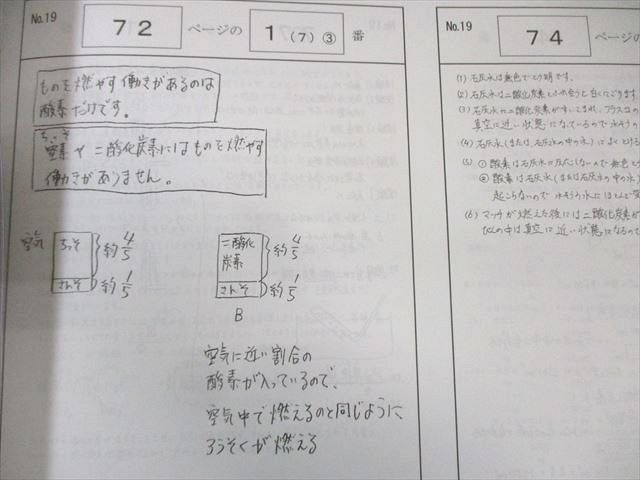 No.19
72
ページの
1 (7) ③
番
ものを燃やす働きがあるのは
酸素だけです。
ちっそ
窒素や二酸化炭素にはものを燃やす
働きがありません。
空気
ちっそ
約4/5
さんそ
約1/5
二酸化
炭素
約4/5
さんそ
約1/5
B
空気に近い割合の
酸素が入っているので、
空気中で燃えるのと同じように
ろうそくが燃える
No.19
74
ページ
(1) 石灰水は無色でとう明です。
(2) 石灰水は二酸化炭素とふれ合うと白くにごります
(3) 石灰水に二酸化炭素が
真空に近い状態になっているので水そう
(4) 石灰水(または、石灰水の中の水)によくとける
(5) ① 酸素は石灰水に
② 酸素は、石灰水(または石灰水の中の水)
起こらないので 水そうの水には
(6) マッチが燃えた後には二酸化炭素が
びんの中は真空に近い状態になるので